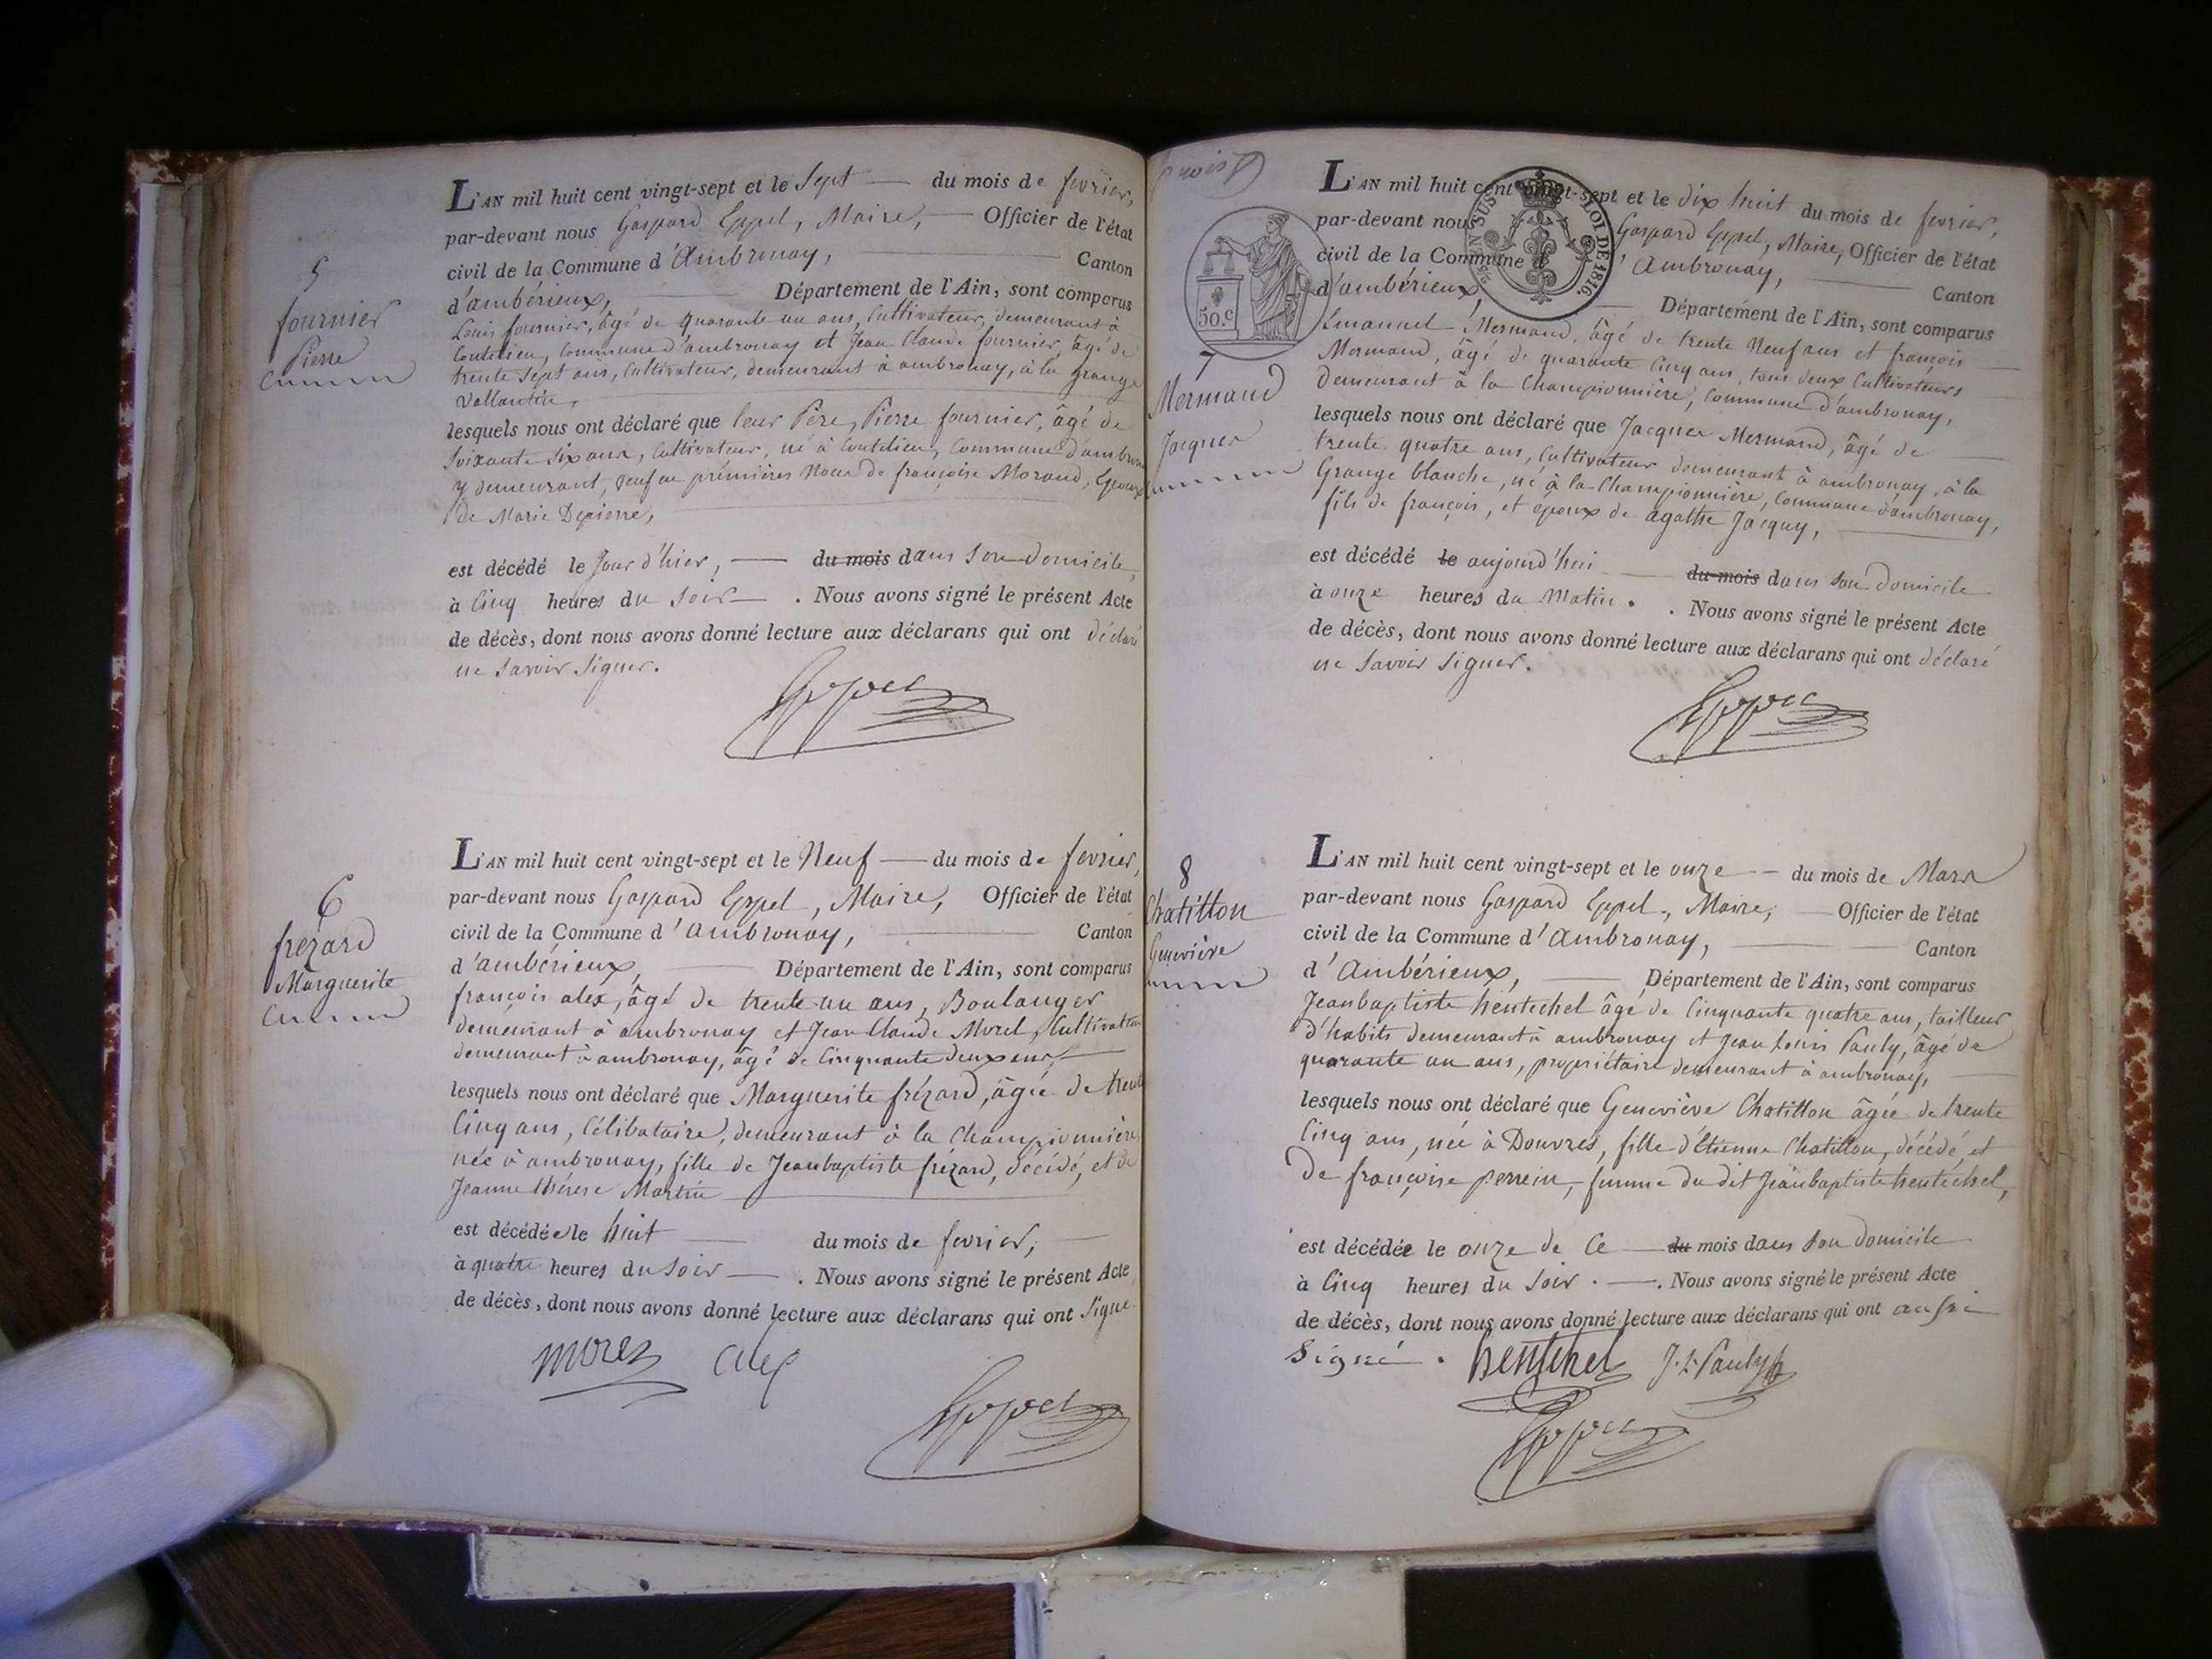 5
fournier
Pierre
L'AN mil huit cent vingt-sept et le Sept du mois de fevrier,
par-devant nous Gaspard Eppel, Maire, Officier de l'état
civil de la Commune d'Ambronay, Canton
d'ambérieux, Département de l'Ain, sont comparus
Louis fournier, âgé de quarante un ans, Cultivateur, demeurant à
Coutelieu, Commune d'ambronay et Jean Claude fournier, âgé de
trente sept ans, Cultivateur, demeurant à ambronay, à la grange
Vallantin,
lesquels nous ont déclaré que leur Père, Pierre fournier, âgé de
Soixante Six ans, Cultivateur, né à Coutelieu, Commune d'ambronay
y demeurant, veuf en prémières Noces de françoise Morand, Epoux
de Marie Depierre,
est décédé le jour d'hier, du mois dans son domicile,
à Cinq heures du Soir. Nous avons signé le présent Acte
de décès, dont nous avons donné lecture aux déclarans qui ont déclaré
ne Savoir Signer.
Eppel
6
frézard
Marguerite
L'AN mil huit cent vingt-sept et le Neuf du mois de fevrier,
par-devant nous Gaspard Eppel, Maire, Officier de l'état
civil de la Commune d'Ambronay, Canton
d'ambérieux, Département de l'Ain, sont comparus
françois alex, âgé de trente-un ans, Boulanger
demeurant à ambronay et Jean Claude Morel, Cultivateur
demeurant à ambronay, âgé de Cinquante deux ans,
lesquels nous ont déclaré que Marguerite frézard, âgée de trente
Cinq ans, Célibataire, demeurant à la Championnière,
née à ambronay, fille de Jeanbaptiste frézard, décédé, et de
Jeanne thérese Martin
est décédée le huit du mois de fevrier,
à quatre heures du Soir. Nous avons signé le présent Acte
de décès, dont nous avons donné lecture aux déclarans qui ont Signé.
morel alex
Eppel
50.c
LOI DE 1816.
7
Mermand
Jacques
L'AN mil huit cent vingt-sept et le dix huit du mois de fevrier,
par-devant nous Gaspard Eppel, Maire, Officier de l'état
civil de la Commune d'Ambronay, Canton
d'ambérieux, Département de l'Ain, sont comparus
Emanuel Mermand, âgé de trente Neuf ans et françois
Mermand, âgé de quarante Cinq ans, tous deux Cultivateurs
demeurant à la Championnière, Commune d'ambronay,
lesquels nous ont déclaré que Jacques Mermand, âgé de
trente quatre ans, Cultivateur demeurant à ambronay, à la
Grange blanche, né à la Championnière, Commune d'ambronay,
fils de françois, et époux de agathe Jacquy,
est décédé le aujourd'hui du mois dans son domicile
à onze heures du Matin. Nous avons signé le présent Acte
de décès, dont nous avons donné lecture aux déclarans qui ont déclaré
ne Savoir Signer.
Eppel
8
Chatillon
Geneviève
L'AN mil huit cent vingt-sept et le onze du mois de Mars
par-devant nous Gaspard Eppel, Maire, Officier de l'état
civil de la Commune d'Ambronay, Canton
d'Ambérieux, Département de l'Ain, sont comparus
Jeanbaptiste hentechel âgé de Cinquante quatre ans, tailleur
d'habits demeurant à ambronay et Jean Louis Pauly, âgé de
quarante un ans, propriétaire demeurant à ambronay,
lesquels nous ont déclaré que Geneviève Chatillon âgée de trente
Cinq ans, née à Douvres, fille d'Etienne Chatillon, décédé, et
de françoise perrein, femme du dit Jeanbaptiste hentechel,
est décédée le onze de Ce du mois dans son domicile
à Cinq heures du Soir. Nous avons signé le présent Acte
de décès, dont nous avons donné lecture aux déclarans qui ont aussi
Signé. hentchel J. L. Pauly
Eppel